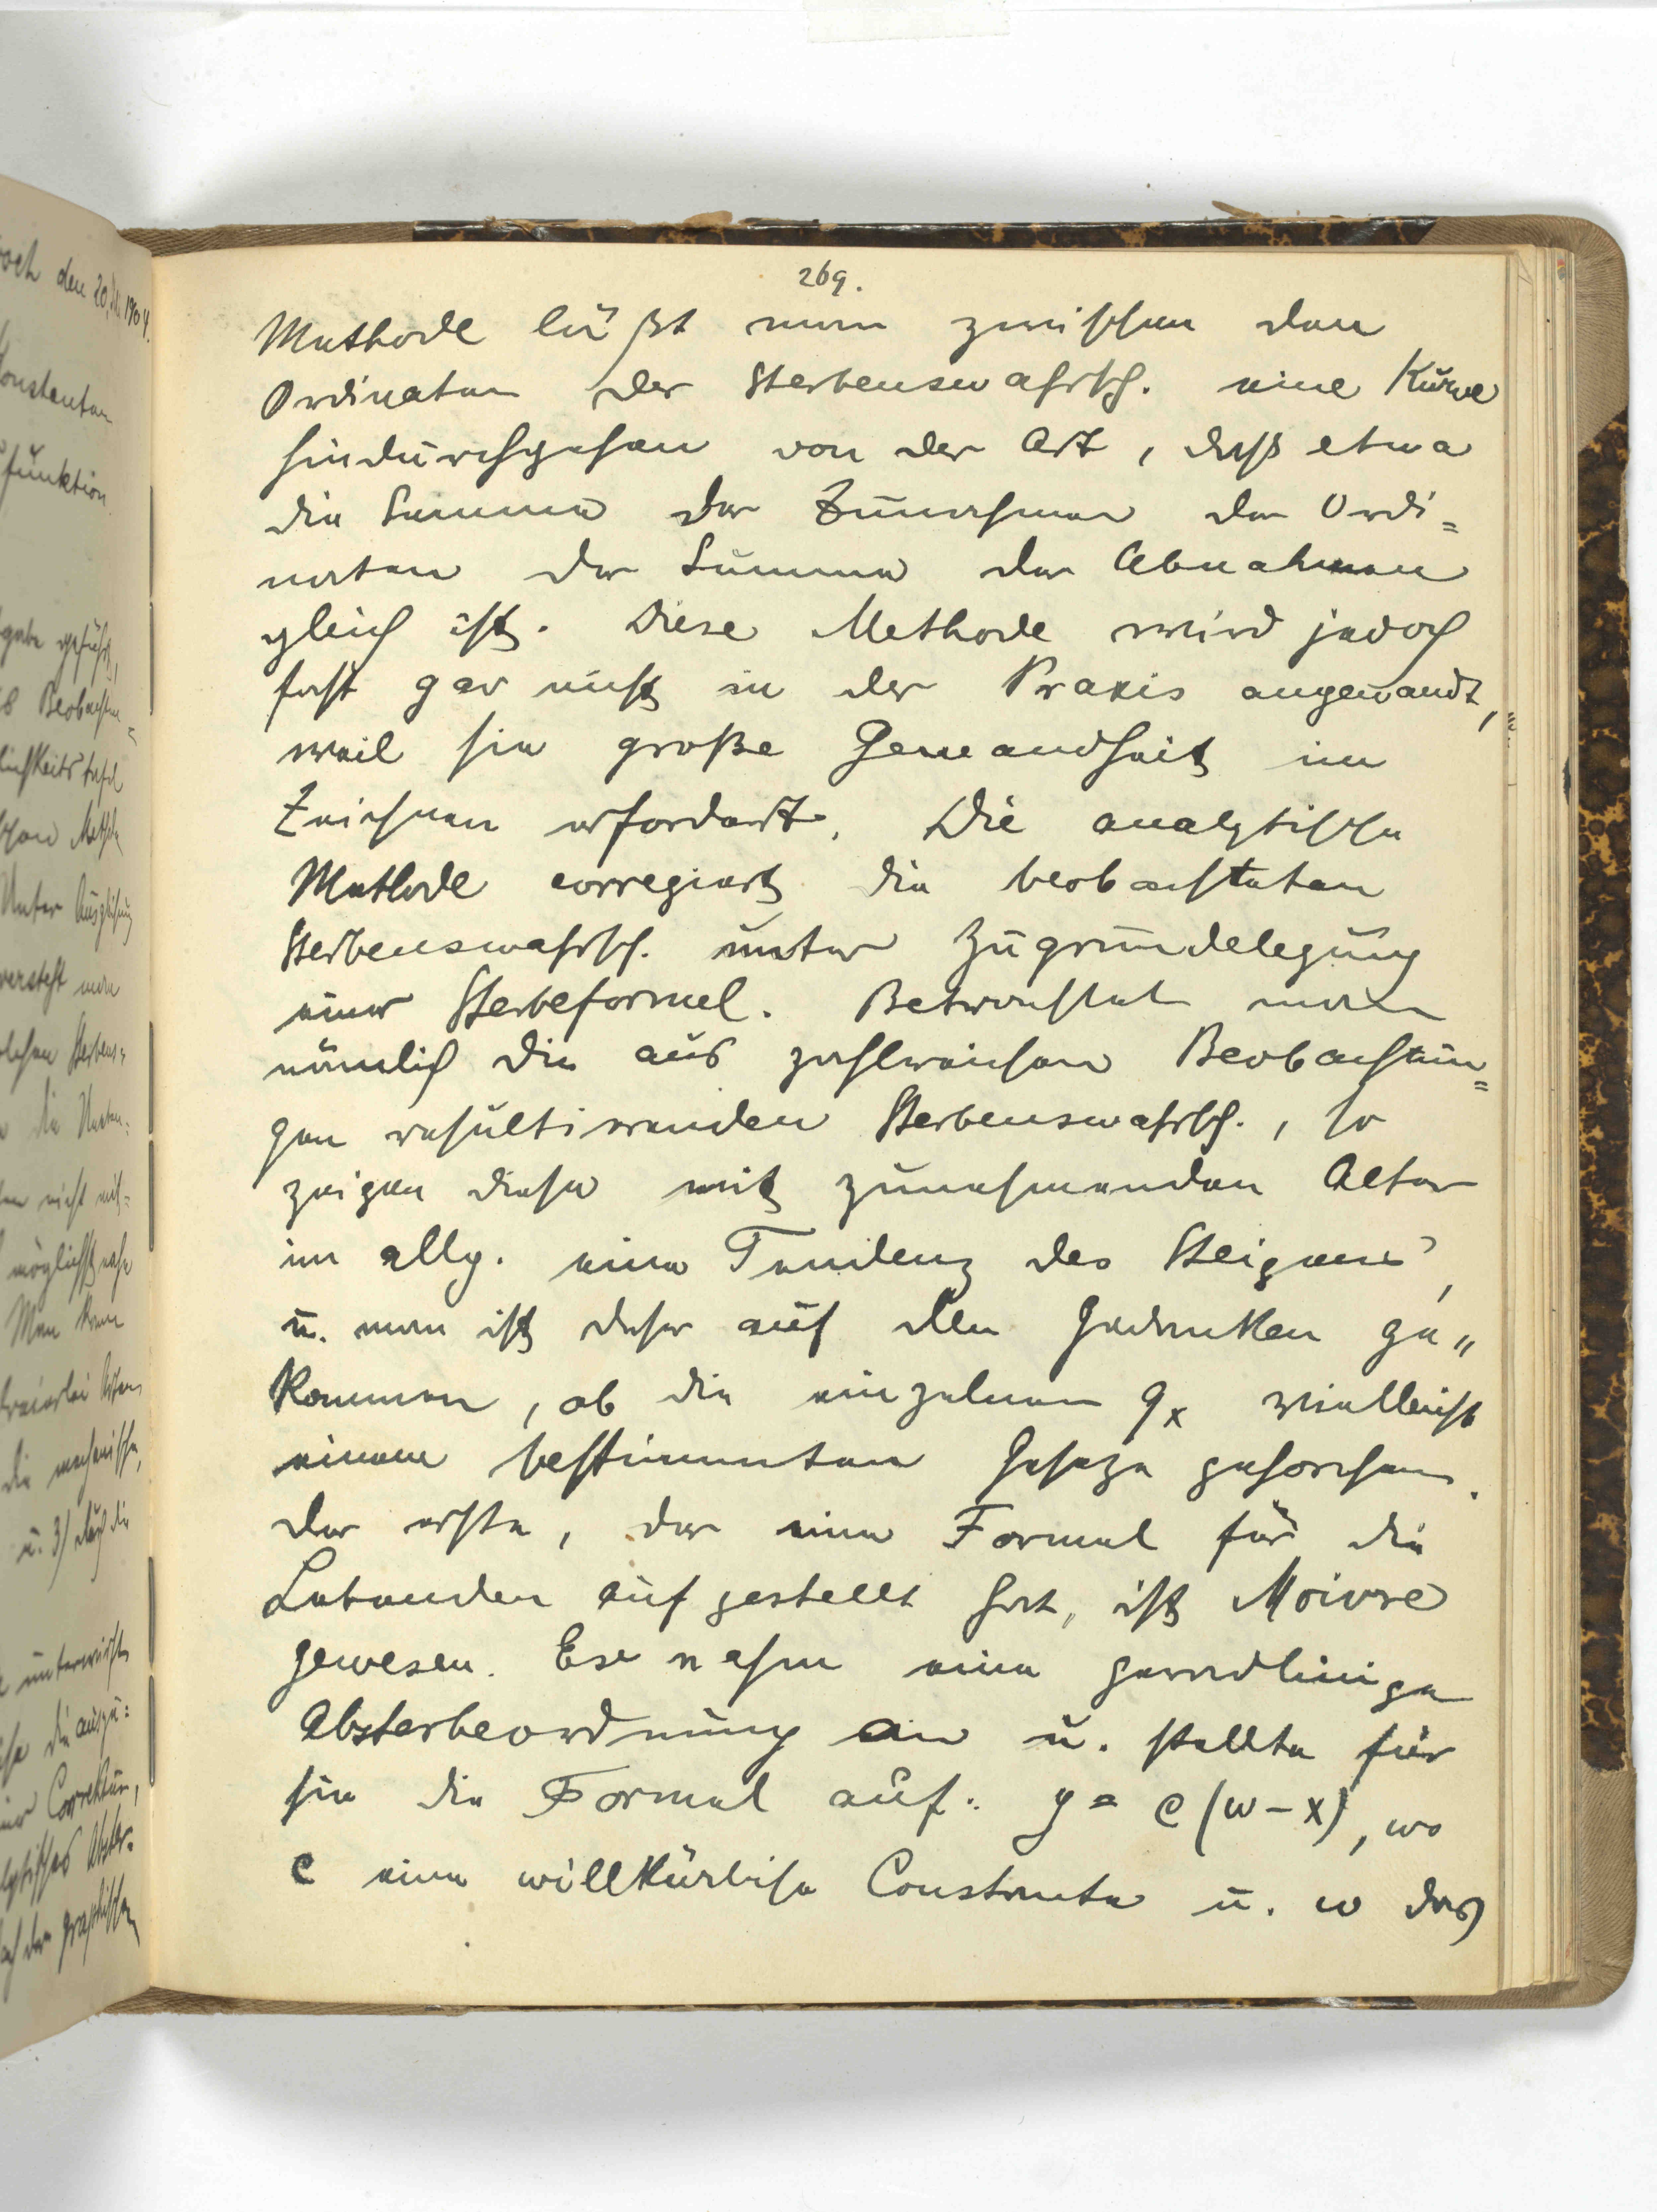 269.
Methode läßt man zwischen den
Ordinaten der Sterbenswahrsch. eine Kurve
hindurchgehen von der Art, daß etwa
die Summe der Zunahmen der Ordi=
naten der Summe der Abnahmen
gleich ist. Diese Methode wird jedoch
fast gar nicht in der Praxis angewandt,
weil sie große Gewandheit im
Zeichnen erfordert. Die analytische
Methode corregiert die beobachteten
Sterbenswahrsch. unter Zugrundelegung
einer Sterbeformel. Betrachtet man
nämlich die aus zahlreichen Beobachtun=
gen resultirenden Sterbenswahrsch., so
zeigen diese mit zunehmenden Alter
im allg. eine Tendenz des Steigens,
u. man ist daher auf den Gedanken ge„
kommen, ob die einzelnen qx vielleicht
einem bestimmten Geseze gehorchen.
Der erste, der eine Formel für die
Lebenden aufgestellt hat, ist Moivre
gewesen. Er nahm eine geradlinige
Absterbeordnung an u. stellte für
sie die Formel auf: y = c (w - x), wo
c eine willkürliche Constante u. w das
den 20.
onstanten
funktion
gabe geführt,
Beobachtun=
lichkeitstafel
Unter Ausgleichung
versteht man
Sterbens=
nicht mit=
möglichst nahe
Man kann
dreierlei Arten
die mechanische,
u. 3) durch die
unterwirft
Correktur,
graphischen